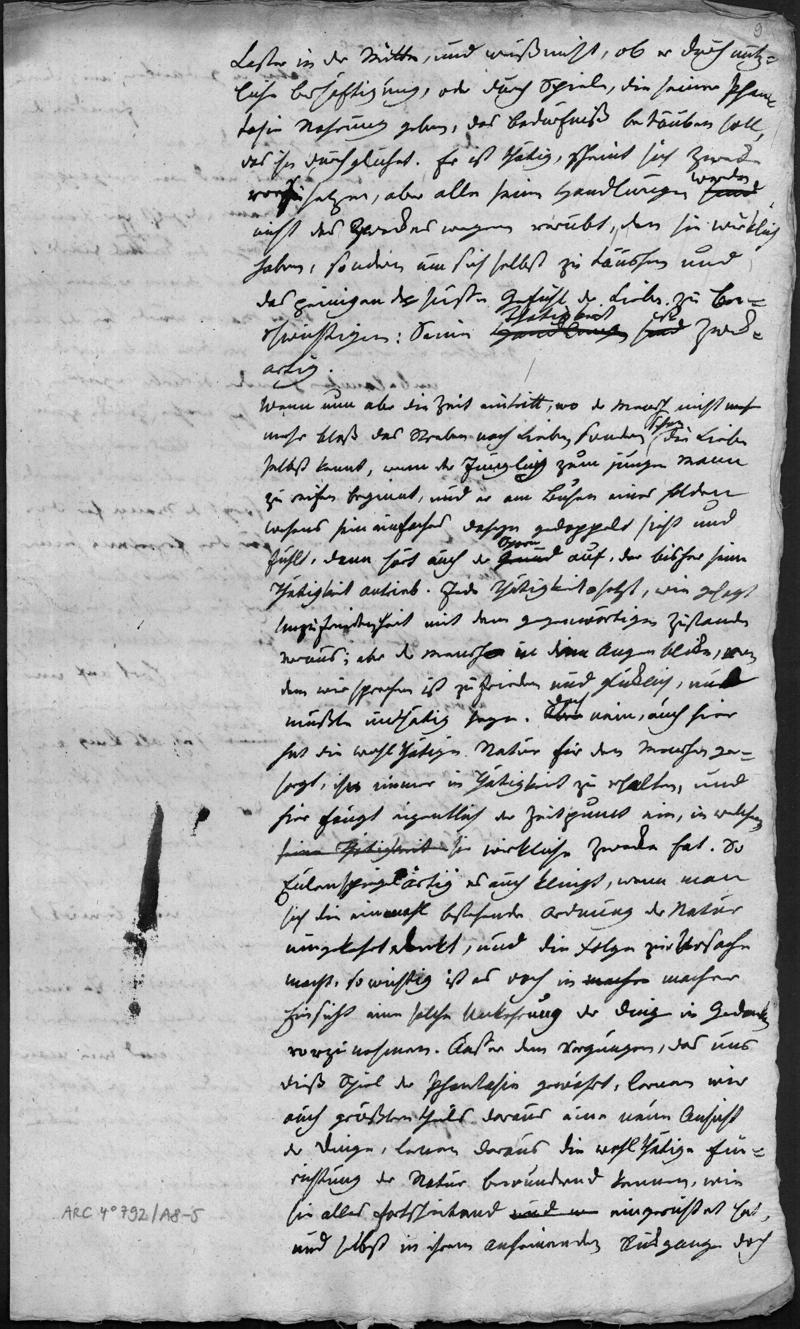 Laster in der Mitte, und weiß nicht, ob er durch nütz=
liche beschäftigung, oder durch Spiele, die seiner Phan=
tasie Nahrung geben, das bedürfniß betäuben soll,
das ihn durchglühet. Er ist thätig, scheint sich Zwecke
vorzusetzen, aber alle seine Handlungen werden
nicht des Zweckes wegen verübt, den sie wirklich
haben, sondern um sich selbst zu täuschen und
das peinigende süsse Gefühl der Liebe zu be=
schwichtigen: Seine Thätigkeit ist Zweck=
artig.
Wenn nun aber die Zeit eintritt, wo der Mensch nicht
mehr bloß das Streben nach Liebe, sondern schon die Liebe
selbst kennt, wenn der Jüngling zum jungen Mann
zu reifen beginnt, und er am Busen eines holden
Wesens sein einfaches daseyn gedoppelt sieht und
fühlt, dann hört auch der Sporn auf, der bisher seine
Thätigkeit antrieb. Jede Thätigkeit setzt, wie gesagt
Unzufriedenheit mit dem gegenwärtigen Zustande
voraus; aber der Mensch in dem Augenblicke, von
dem wir sprechen ist zufrieden und glücklich, und
müßte unthätig seyn. Doch nein, auch hier
hat die wohlthätige Natur für den Menschen ge=
sorgt, ihn immer in Thätigkeit zu erhalten, und
hier fängt eigentlich der Zeitpunct an, in welchem
seine Thätigkeit sie wirkliche Zwecke hat. So
Eulenspiegelartig es auch klingt, wenn man
sich die einmahl bestehende Ordnung der Natur
umgekehrt denkt, und die Folge zur Ursache
macht, so wichtig ist es doch in mancher
Hinsicht eine solche Umkehrung der Dinge in Gedanken
vorzunehmen. Außer dem Vergnügen, das uns
dieß Spiel der Phantasie gewährt, lernen wir
auch größtentheils daraus eine neue Ansicht
der Dinge, lernen daraus die wohlthätige Ein=
richtung der Natur bewundernd kennen, wie
sie alles fortschreitend und eingerichtet hat,
und selbst in ihrem anscheinenden Rückgange doch
ARC 4° 792/A8-5
9